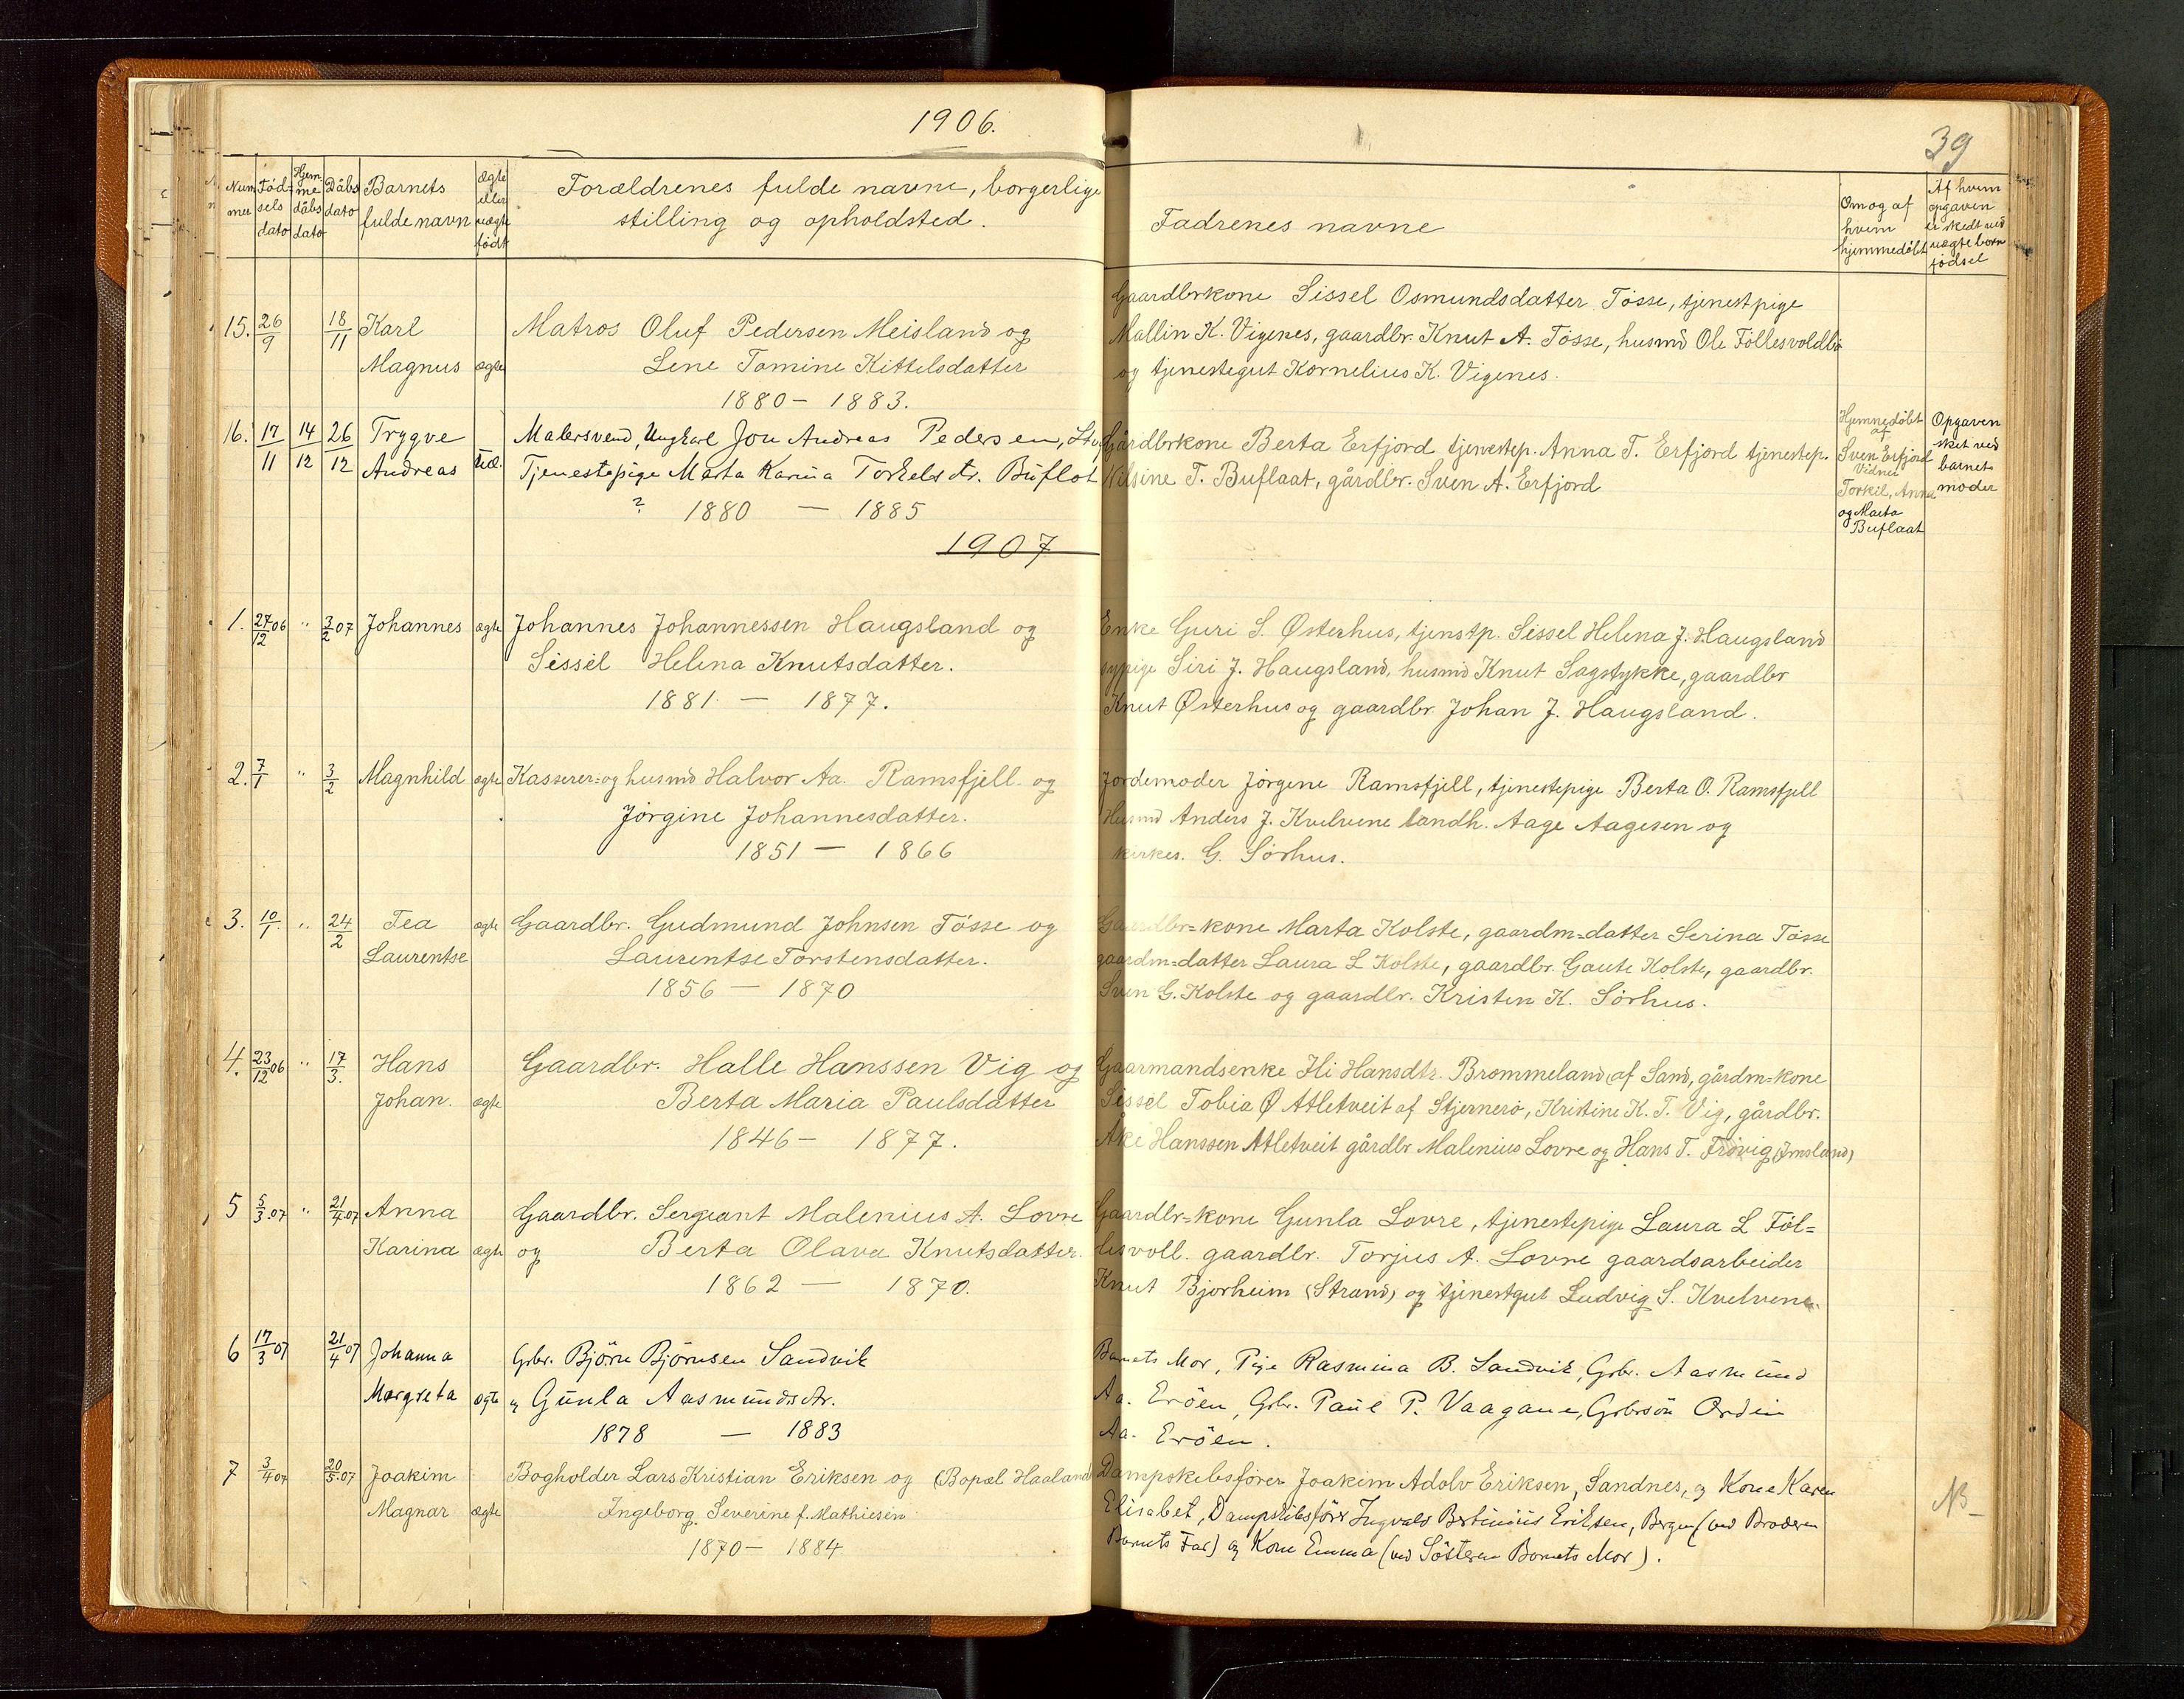 1906.
39
Num
mer
Fød-
sels
dato
Hjem-
me
dåbs
dato
Dåbs
dato
Barnets
fulde navn
Ægte
eller
uægte
født
Forældrenes fulde navne, borgerlige
stilling og opholdsted.
Fadrenes navne
Om og af
hvem
hjemmedøbt
Af hvem
opgaven
er skedt ved
uægte børn
fødsel
Gaardbrkone Sissel Osmundsdatter Tösse, tjenestpige
15. 26/9 18/11 Karl Matros Oluf Pedersen Meisland og
Mallin K. Vigenes, gaardbr. Knut A. Tösse, husmd Ole Föllesvoldbö
Magnus ægte Lene Tomine Kittelsdatter
og tjenestegut Kornelius K. Vigenes.
1880 - 1883.
16. 17/11 14/12 26/12 Trygve Malersvend, Ungkarl Jon Andreas Pedersen, Stvgr
Gårdbrkone Berta Erfjord tjenestep. Anna T. Erfjord tjenestep.
Andreas Uæ. Tjenestepige Marta Karina Torkelsdtr. Buflot
Nilsine T. Buflaat, gårdbr. Sven A. Erfjord
? 1880 — 1885
Hjemmedøbt
af
Sven Erfjord
Vidner
Torkil, Anna
og Marta
Buflaat
Opgaven
sket ved
barnets
moder
1907
1. 27/12 06 " 3/2 07 Johannes ægte Johannes Johannessen Haugsland og
Enke Guri S. Østerhus, tjenstp. Sissel Helena J. Haugsland
Sissel Helena Knutsdatter.
sypige Siri J. Haugsland, husmd Knut Sagstykke, gaardbr
1881 — 1877.
Knut Østerhus og gaardbr. Johan J. Haugsland.
2. 7/1 " 3/2 Magnhild ægte Kasserer- og husmd Halvor Aa. Ramsfjell og
Jordemoder Jörgene Ramsfjell, tjenestepige Berta O. Ramsfjell
Jörgine Johannesdatter.
Husmd Anders J. Kvelvene landh. Aage Aagesen og
1851 — 1866
kirkes. G. Sörhus.
3. 10/1 " 24/2 Tea ægte Gaardbr. Gudmund Johnsen Tösse og
Gaardbr=kone Marta Kolste, gaardm=datter Serina Tösse
Laurentse Laurentse Torstensdatter.
gaardm=datter Laura L Kolste, gaardbr. Gaute Kolste, gaardbr.
1856 — 1870
Sven G. Kolste og gaardbr. Kristen K. Sörhus.
4. 23/12 06 " 17/3. Hans Gaardbr. Halle Hanssen Vig og
Gaarmandsenke Hi Hansdtr. Brommeland af Sand, gårdm=kone
Johan. ægte Berta Maria Paulsdatter
Sissel Tobia Ø Atletveit af Stjernerö, Kristine K. T. Vig, gårdbr.
1846 - 1877.
Ake Hanssen Atletveit gårdbr Malenius Lovre og Hans T. Frövig (Imsland)
5 5/3.07 " 21/4.07 Anna Gaardbr. Sergeant Malenius A. Lovre
Gaardbr=kone Gunla Lovre, tjenestepige Laura L Föl=
Karina ægte og Berta Olava Knutsdatter.
lesvoll. gaardbr. Torjus A. Lovre gaardsarbeider
1862 — 1870.
Knut Bjorheim (Strand) og tjenestgut Ludvig S. Kvelvene.
6 17/3 07 21/4 07 Johanna Gbr. Björn Björnsen Sandvik
Barnets Mor, Pige Rasmina B. Sandvik, Gbr. Aasmund
Margreta ægte og Gunla Aasmundsdtr.
Aa. Eröen, Gbr. Paul P. Vaagane, Gbrsön Ordin
1878 — 1883
Aa. Eröen.
7 3/4 07 20/5.07 Joakim Bogholder Lars Kristian Eriksen og (Bopæl Haaland
Dampskibsfører Joakim Adolv Eriksen, Sandnes, og Kone Karen
Magnar ægte Ingeborg Severine f. Mathiesen
Elisabet, Dampskibsfører Ingvald Bertinius Eriksen, Bergen (ved Broderen
1870 — 1884
Barnets Far) og Kone Emma (ved Søsteren Barnets Mor).
NB